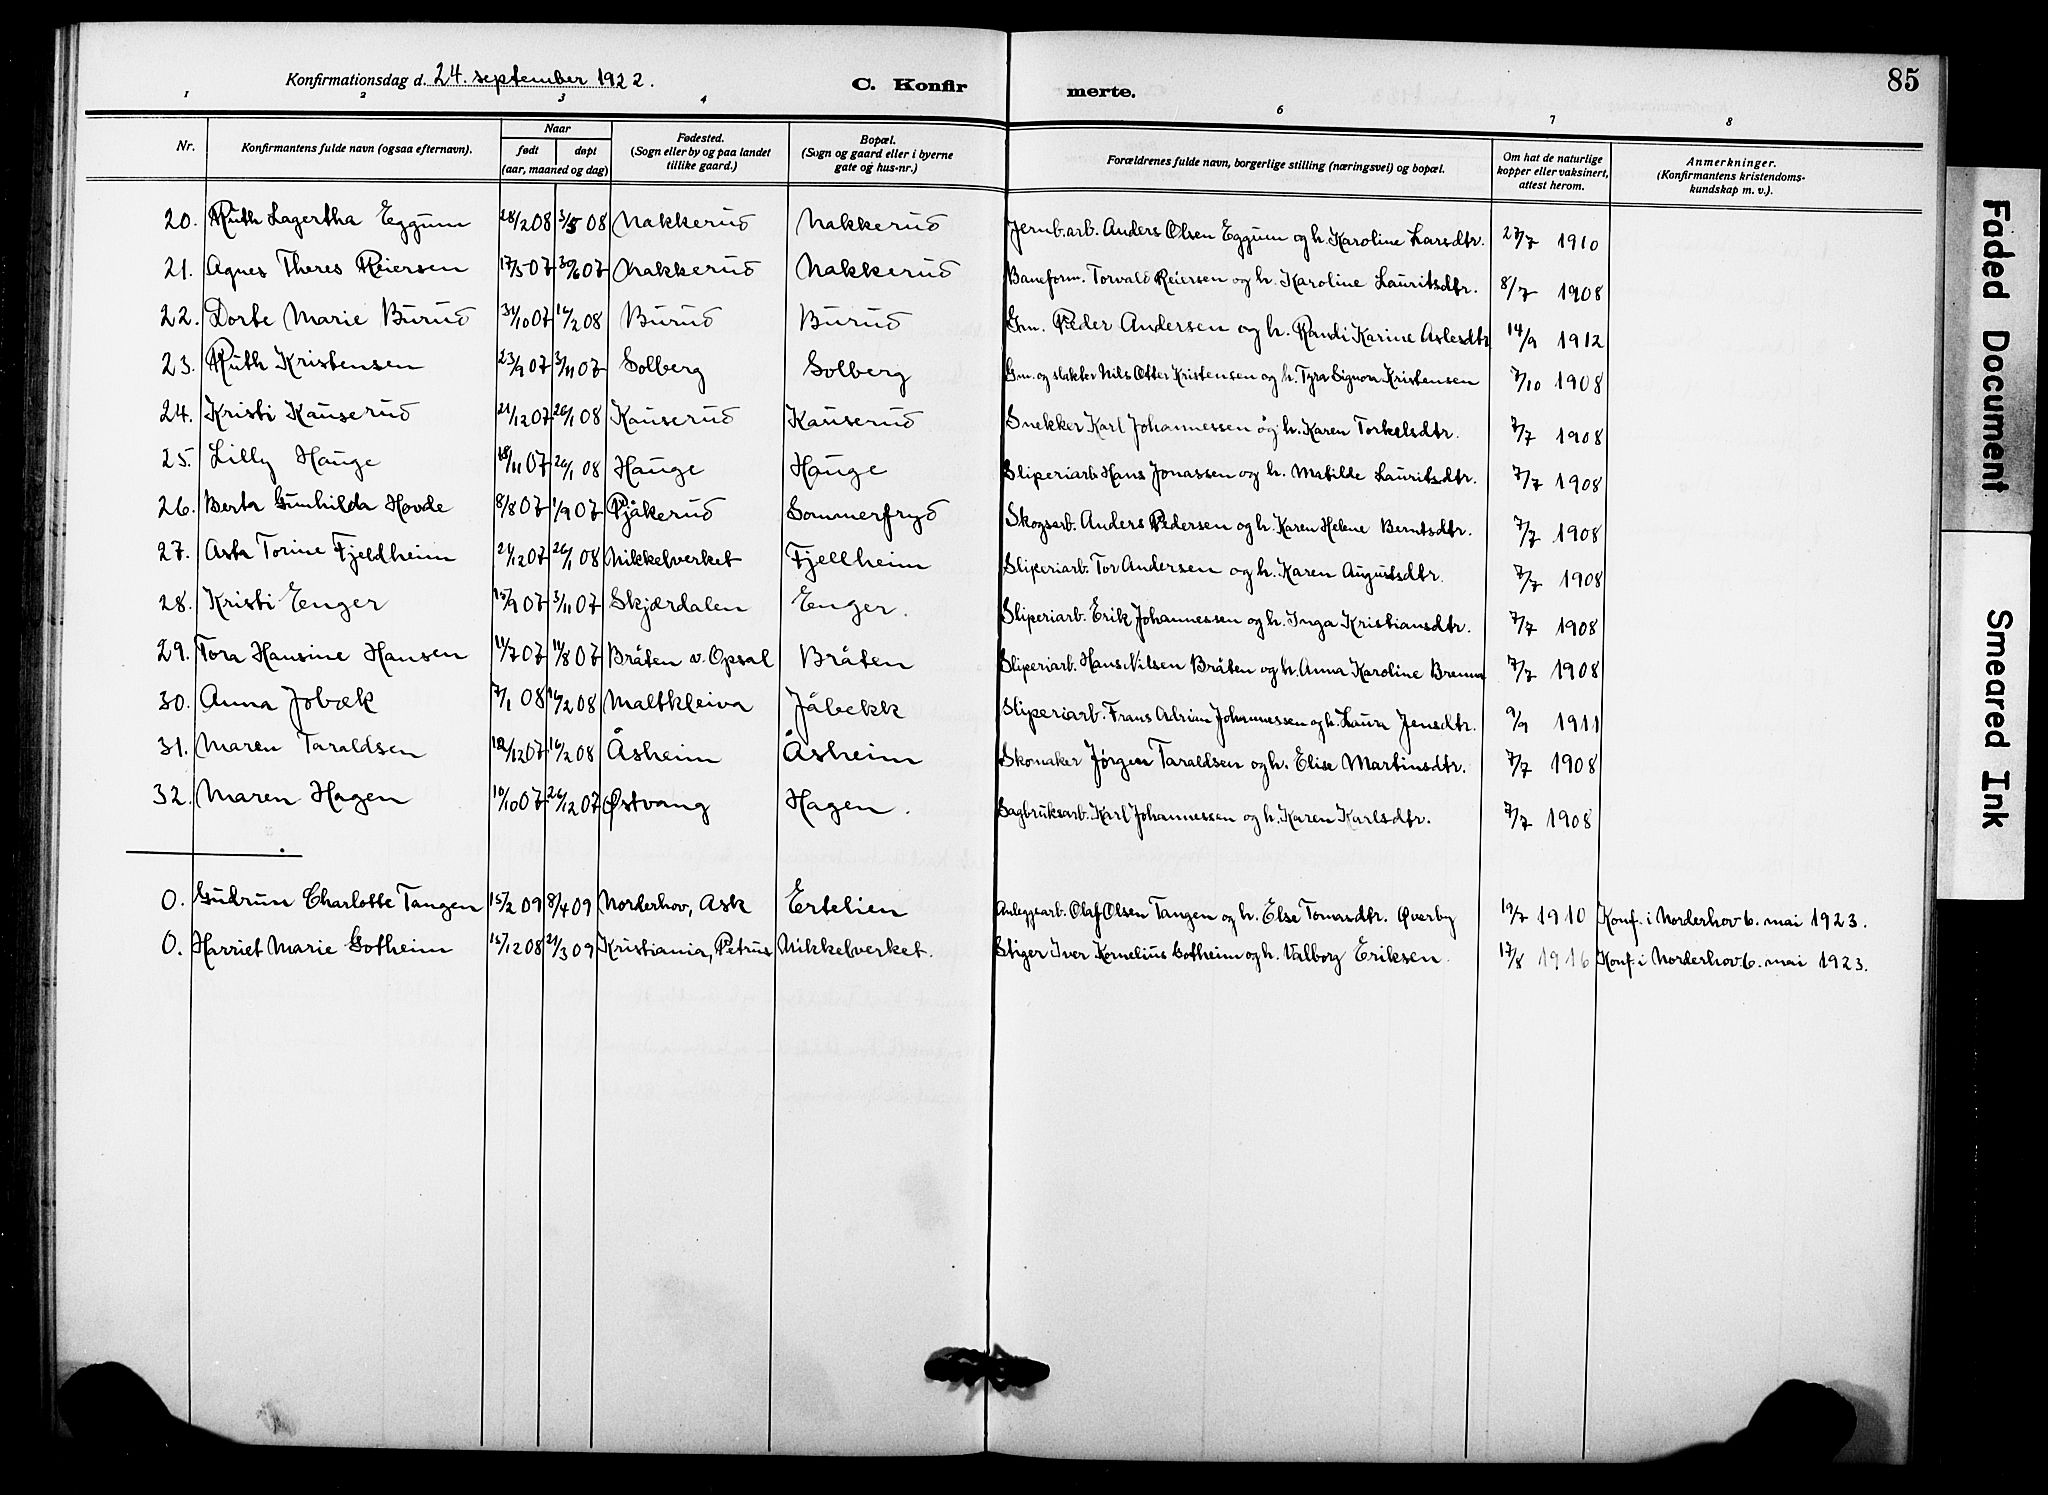 Konfirmationsdag d. 24. september 1922. C. Konfirmerte. 85
1 2 3 4 5 6 7 8
Nr. Konfirmantens fulde navn (ogsaa efternavn). Naar født døpt (aar, maaned og dag) Fødested. (Sogn eller by og paa landet tillike gaard.) Bopæl. (Sogn og gaard eller i byerne gate og hus-nr.) Forældrenes fulde navn, borgerlige stilling (næringsvei) og bopæl. Om hat de naturlige kopper eller vaksinert, attest herom. Anmerkninger. (Konfirmantens kristendomskundskap m. v.).
20. Ruth Lagertha Eggum 28/2 08 3/5 08 Nakkerud Nakkerud Jernb.arb. Anders Olsen Eggum og h. Karoline Larsdtr. 27/7 1910
21. Agnes Theres Reiersen 17/5 07 30/6 07 Nakkerud Nakkerud Baneform. Torvald Reiersen og h. Karoline Lauritsdtr. 8/7 1908
22. Dorte Marie Burud 31/10 07 16/2 08 Burud Burud Gm. Peder Andersen og h. Randi Karine Aslesdtr 14/9 1912
23. Ruth Kristensen 23/9 07 3/11 07 Solberg Solberg Gm. og slakter Nils Otter Kristensen og h. Tyra Signora Kristensen 7/10 1908
24. Kristi Kauserud 21/12 07 26/1 08 Kauserud Kauserud Snekker Karl Johannessen og h. Karen Torkelsdtr. 7/7 1908
25. Lilly Hauge 18/11 07 26/1 08 Hauge Hauge Sliperiarb. Hans Jonassen og h. Matilde Lauritsdtr. 7/7 1908
26. Berta Gunhilda Hovde 8/8 07 1/9 07 Pjåkerud Sommerfryd Skogsarb. Anders Pedersen og h. Karen Helene Berntsdtr. 7/7 1908
27. Asta Torine Fjeldheim 21/12 07 26/1 08 Nikkelverket Fjellheim Sliperiarb. Tor Andersen og h. Karen Augustsdtr. 7/7 1908
28. Kristi Enger 15/9 07 3/11 07 Skjærdalen Enger. Sliperiarb. Erik Johannessen og h. Inga Kristiansdtr. 7/7 1908
29. Tora Hansine Hansen 11/7 07 11/8 07 Bråten v. Opsal Bråten Sliperiarb. Hans Nilsen Bråten og h. Anna Karoline Brenna 7/7 1908
30. Anna Jobæk 7/1 08 16/2 08 Maltkleiva Jåbekk Sliperiarb. Frans Adrian Johannessen og h. Laura Jensdtr. 9/9 1911
31. Maren Taraldsen 12/12 07 16/2 08 Åsheim Åsheim Skomaker Jørgen Taraldsen og h. Elise Martinsdtr. 7/7 1908
32. Maren Hagen 10/10 07 26/12 07 Østvang Hagen. Sagbruksarb. Karl Johannessen og h. Karen Karlsdtr. 7/7 1908
0. Gudrun Charlotte Tangen 15/2 09 8/4 09 Norderhov, Ask Ertelien Anleggsarb. Olaf Olsen Tangen og h. Else Tomasdtr. Øverby 19/7 1910 Konf. i Norderhov 6. mai 1923.
0. Harriet Marie Gotheim 15/12 08 21/3 09 Kristiania, Petrus Nikkelverket. Stiger Iver Kornelius Gotheim og h. Valborg Eriksen. 17/8 1916 Konf. i Norderhov 6. mai 1923.
Faded Document
Smeared Ink